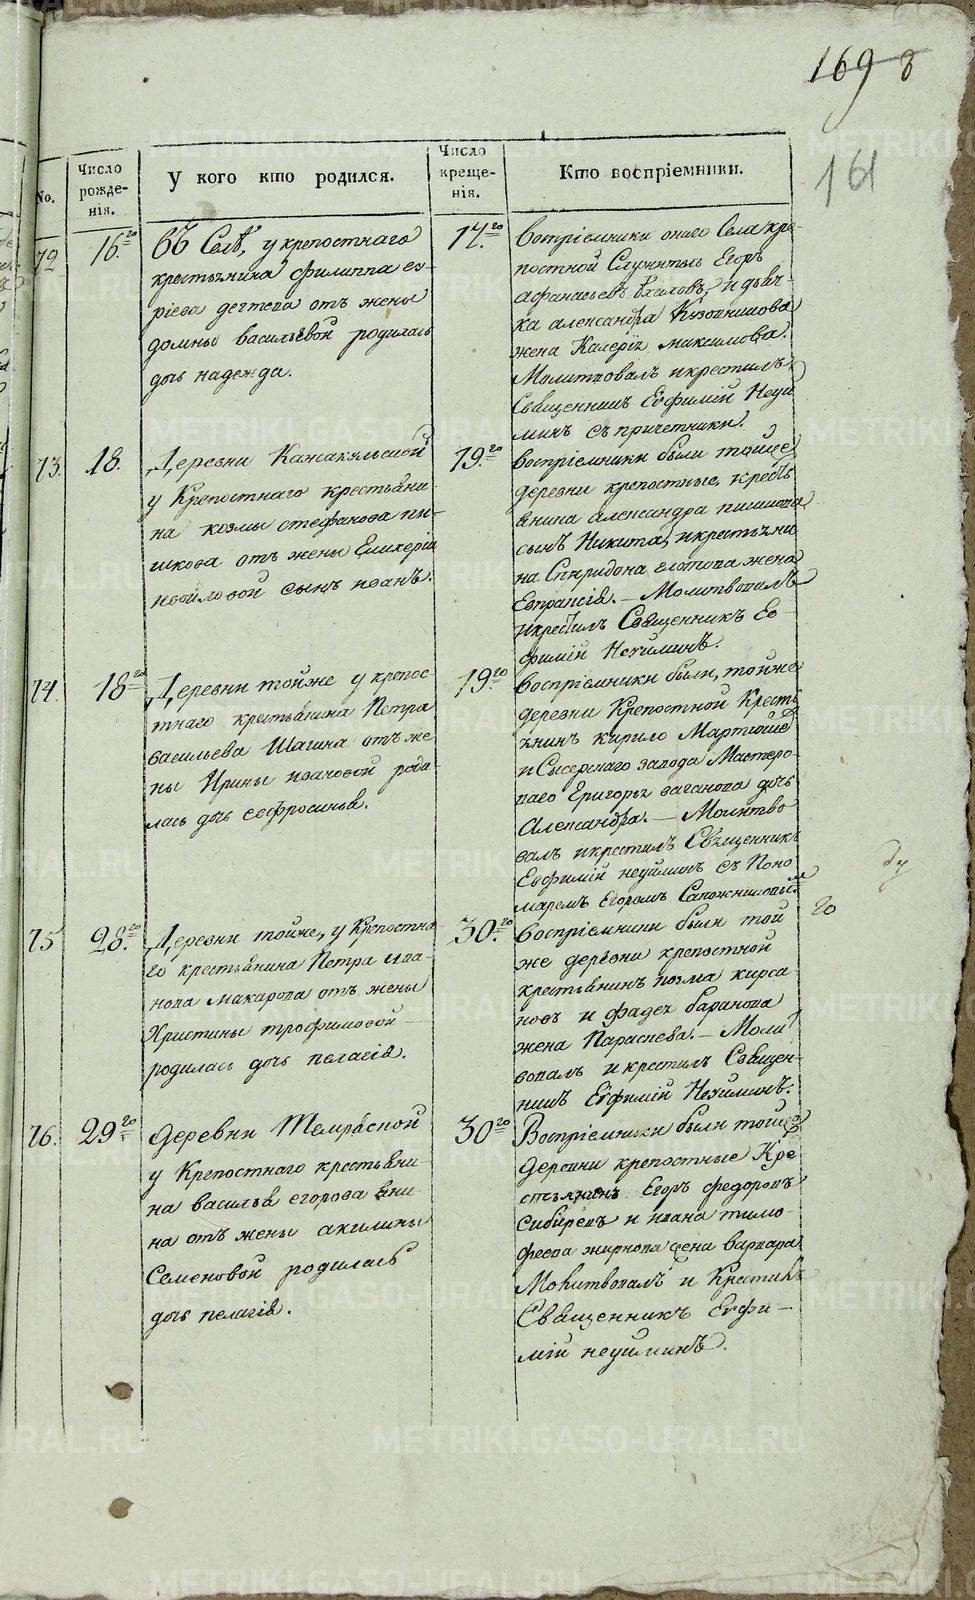 169 8
161
No.
Число рожде-нія.
У кого кто родился.
Число креще-нія.
Кто воспріемники.
72
16.го
въ Селѣ, у крепостнаго
крестьянина филиппа ег-
дегтева отъ жены
домны васильевой родилась
дочь надежда.
17.го
Воспріемники онаго Села кре-
постной Служитель Егоръ
афанасьевъ и дѣвч-
ка александра
жена Максимова.
Молитвовалъ и крестилъ
Священникъ Евфимій Неуй
минъ съ причетники.
73.
18.
Деревни
у Крепостнаго крестьяни-
на козмы стефанова пи-
шкова отъ жены
сынъ иванъ.
19.го
воспріемники были тойже
деревни крепостные, крестья
янина александра пишкова
сынъ Никита, и крестьяни
на Спиридона жена
Евпраксія. — Молитвовалъ
и крестилъ Священникъ Ев-
фимій Неуйминъ.
74.
18го
Деревни тойже у крепос-
тнаго крестьянина Петра
васильева Шагина отъ же
ны Ирины ивановой роди
лась дочь ефросинья.
19.го
воспріемники были, тойже
деревни Крепостной Кресть
янинъ кирило
и Сысерскаго завода Мастеро-
ваго Григорья ваганова дочь
Александра. — Молитво
валъ и крестилъ Священникъ
Евфимій неуйминъ съ Поно
маремъ Егоромъ Сапожниковым
75
28.го
Деревни тойже, у Крепостна
го крестьянина Петра ива-
нова макарова отъ жены
Христины трофимовой
родилась дочь пелагія.
30.го
воспріемники были той
же деревни крепостной
крестьянинъ козма кирса
новъ и фадея баранова
жена Параскева. — Молит
вовалъ и крестилъ Священ-
никъ Евфимій Неуйминъ.
76.
29го
деревни
у Крепостнаго крестьяни-
на василья егорова
на отъ жены акилины
Семеновой родилась
дочь пелагія.
30го
Воспріемники были тойже
деревни крепостные Кре
стьянинъ Егоръ федоровъ
и ивана тимо-
феева жирнова жена варвара
Молитвовалъ и Крестилъ
Священникъ Евфи-
мій неуйминъ.
METRIKI.GASO-URAL.RU